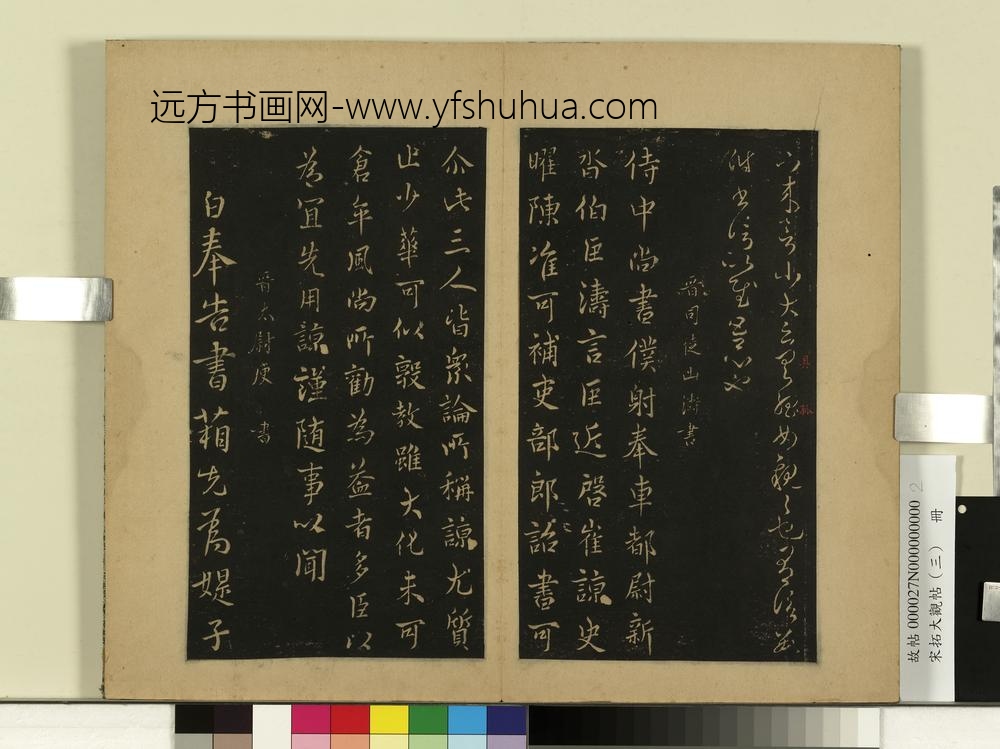 远方书画网-www.yfshuhua.com
附书信以慰吾心也
晋司徒山濤書
侍中尚書僕射奉車都尉新
沓伯臣濤言臣近啓崔諒史
曜陳准可補吏部郎詔書可
尒此三人皆衆論所稱諒尤質
止少華可以敦教雖大化未可
倉卒風尚所勸為益者多臣以
為宜先用諒謹随事以聞
晋太尉庾 書
白奉告書箱先為媞子
故帖 000027N000000000 2
宋拓大觀帖(三) 冊